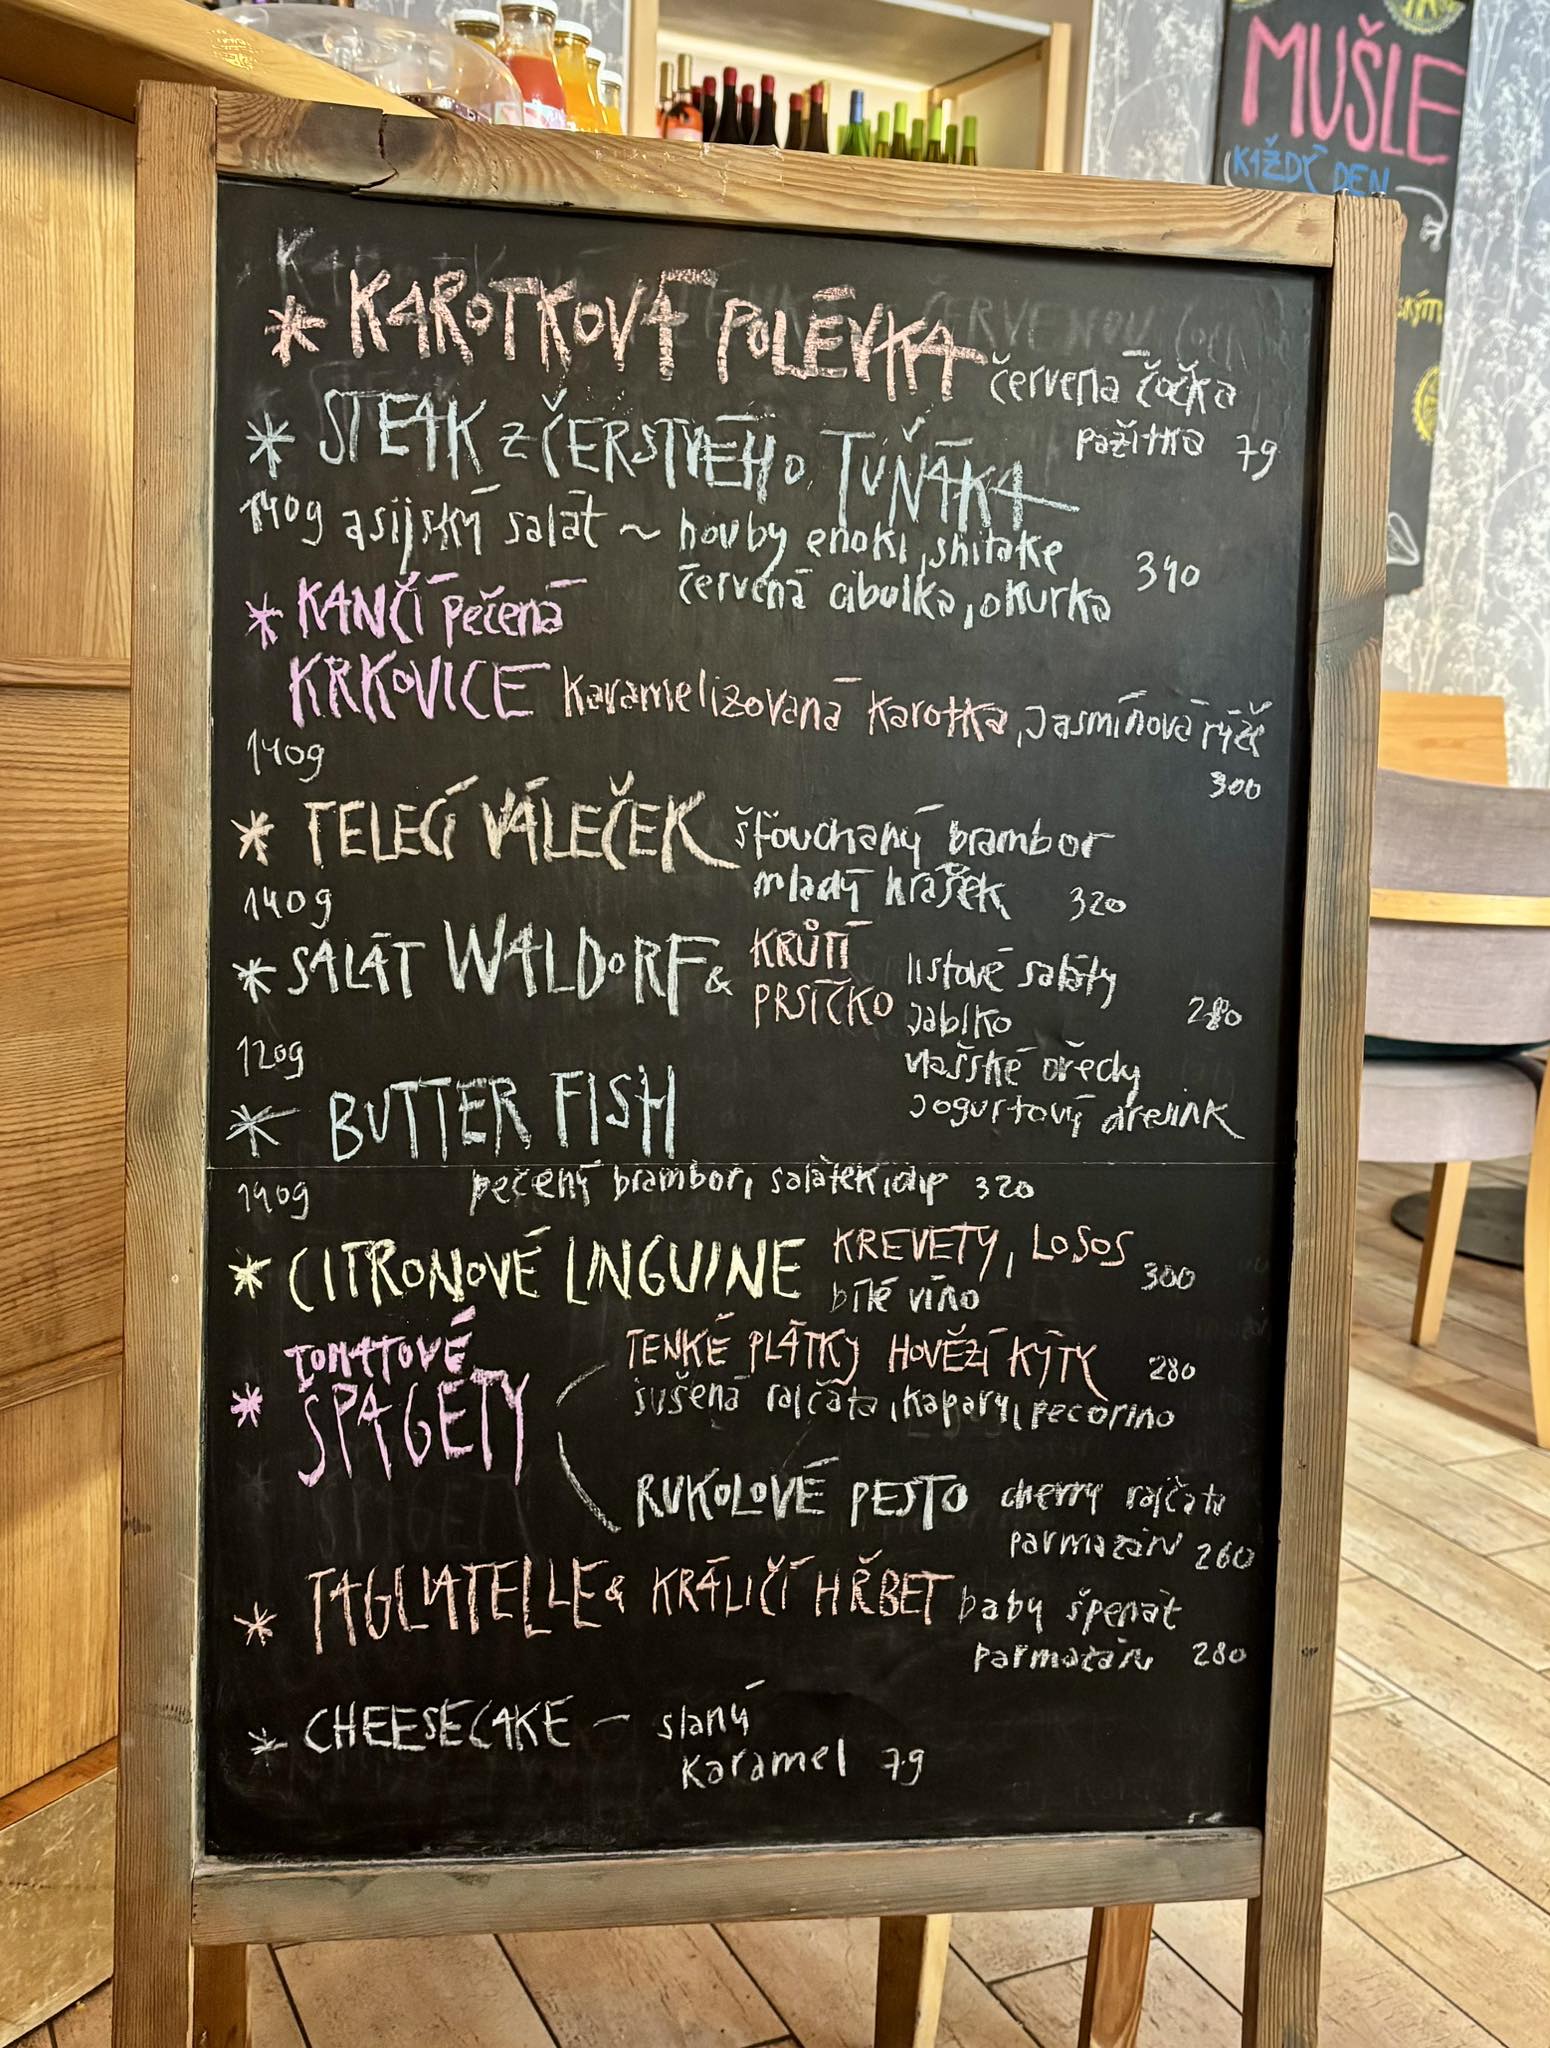 MUŠLE
KAŽDÝ DEN
* KAROTKOVÁ POLÉVKA červená čočka
pažitka 79
* STEAK z ČERSTVÉHO TUŇÁKA
140g asijský salát ~ houby enoki, shitake
červená cibulka, okurka 340
* KANČÍ pečená
KRKOVICE karamelizovaná karotka, jasmínová rýže
140g 300
* TELECÍ VÁLEČEK šťouchaný brambor
140g mladý hrášek 320
* SALÁT WALDORF & KRŮTÍ PRSÍČKO listové saláty
jablko
120g vlašské ořechy
jogurtový dresink
* BUTTER FISH
190g pečený brambor, salátek, dip 320
* CITRONOVÉ LINGUINE KREVETY, LOSOS
bílé víno 300
TOMATOVÉ
* ŠPAGETY TENKÉ PLÁTKY HOVĚZÍ KÝTY 280
sušená rajčata, kapary, pecorino
RUKOLOVÉ PESTO cherry rajčata
parmazán 260
* TAGLIATELLE & KRÁLIČÍ HŘBET baby špenát
parmazán 280
* CHEESECAKE – slaný
karamel 79